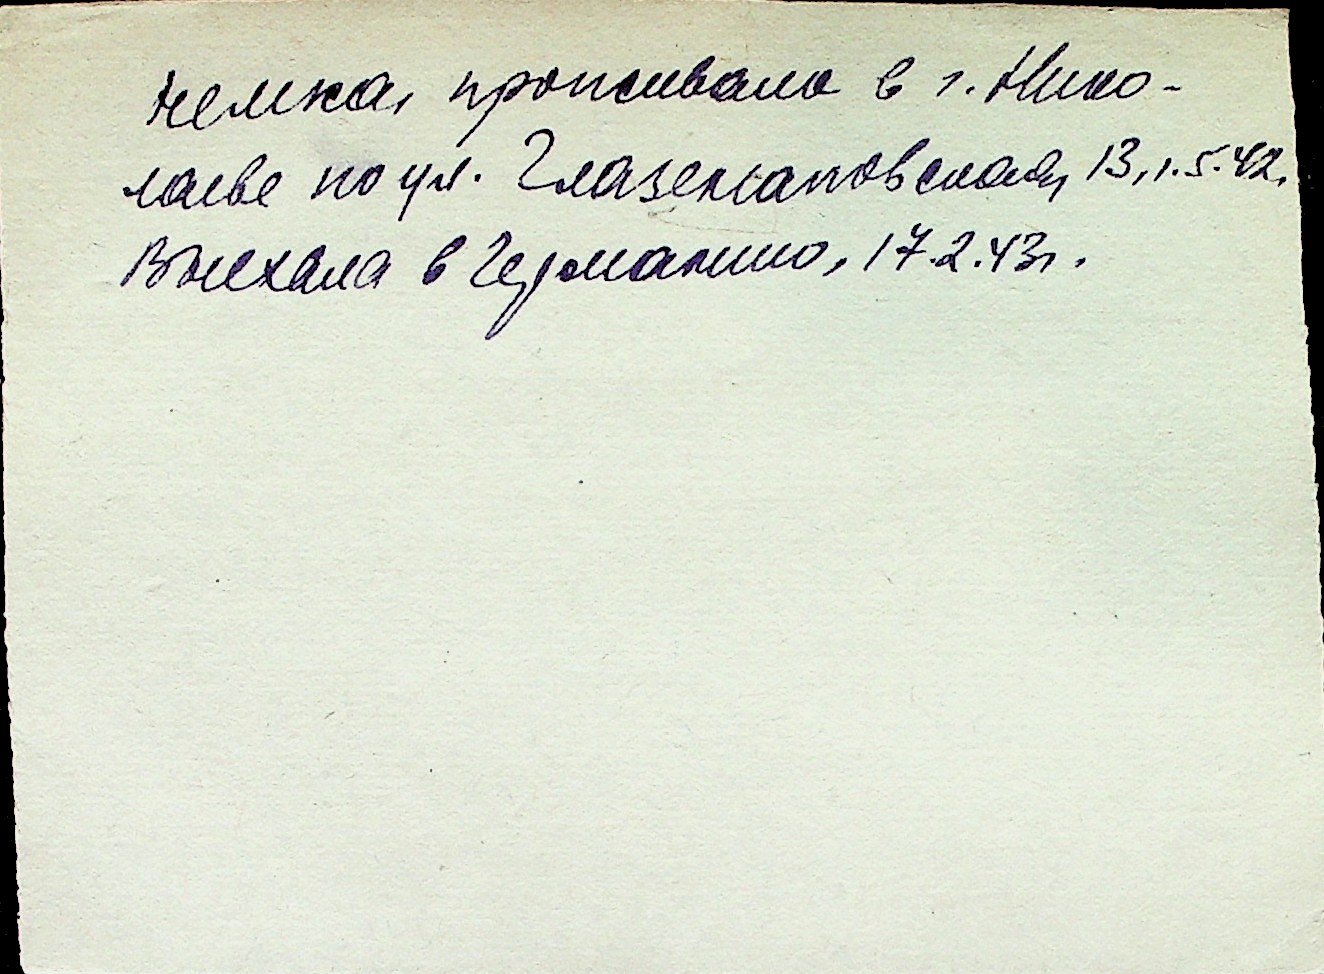 немка, проживала в г. Нико-
лаеве по ул. Глазенаповская, 13, 1.5.42,
Выехала в Германию, 17.2.43г.